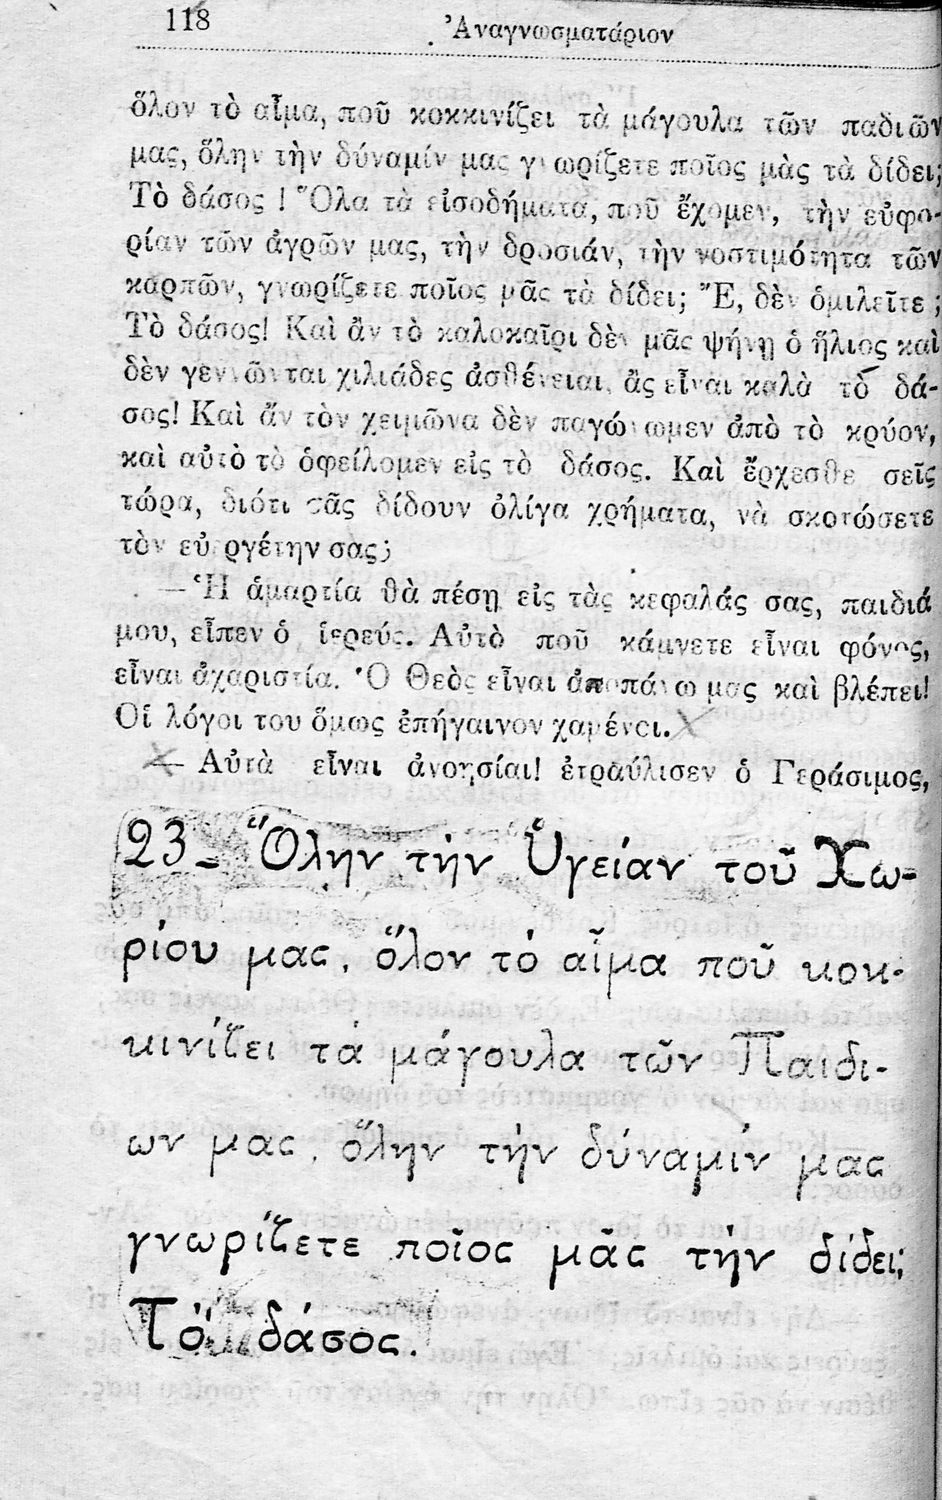 118
Ἀναγνωσματάριον
ὅλον τὸ αἷμα, ποῦ κοκκινίζει τὰ μάγουλα τῶν παδιῶν
μας, ὅλην τὴν δύναμίν μας γνωρίζετε ποῖος μὰς τὰ δίδει;
Τὸ δάσος ! Ὅλα τὰ εἰσοδήματα, ποῦ ἔχομεν, τὴν εὐφο-
ρίαν τῶν ἀγρῶν μας, τὴν δροσιάν, τὴν νοστιμότητα τῶν
καρπῶν, γνωρίζετε ποῖος μᾶς τὰ δίδει; Ἔ, δὲν ὁμιλεῖτε ;
Τὸ δάσος! Καὶ ἂν τὸ καλοκαῖρι δὲν μᾶς ψήνῃ ὁ ἥλιος καὶ
δὲν γεννῶνται χιλιάδες ἀσθένειαι, ἂς εἶναι καλὰ τὸ δά-
σος! Καὶ ἄν τὸν χειμῶνα δὲν παγώνωμεν ἀπὸ τὸ κρύον,
καὶ αὐτὸ τὸ ὀφείλομεν εἰς τὸ δάσος. Καὶ ἔρχεσθε σεῖς
τώρα, διότι σᾶς δίδουν ὀλίγα χρήματα, νὰ σκοτώσετε
τὸν εὐεργέτην σας;
— Ἡ ἁμαρτία θὰ πέσῃ εἰς τὰς κεφαλάς σας, παιδιά
μου, εἶπεν ὁ ἱερεύς. Αὐτὸ ποῦ κάμνετε εἶναι φόνος,
εἶναι ἀχαριστία. Ὁ Θεὸς εἶναι ἀποπάνω μας καὶ βλέπει!
Οἱ λόγοι του ὅμως ἐπήγαινον χαμένοι.
— Αὐτὰ εἶναι ἀνοησίαι! ἐτραύλισεν ὁ Γεράσιμος,
23 - Ὅλην τήν Ὑγείαν τοῦ Χω-
ρίου μας, ὅλον τό αἷμα ποῦ κοκ-
κινίζει τά μάγουλα τῶν Παιδι-
ων μας, ὅλην τήν δύναμίν μας
γνωρίζετε ποῖος μᾶς τήν δίδει;
Τό δάσος.